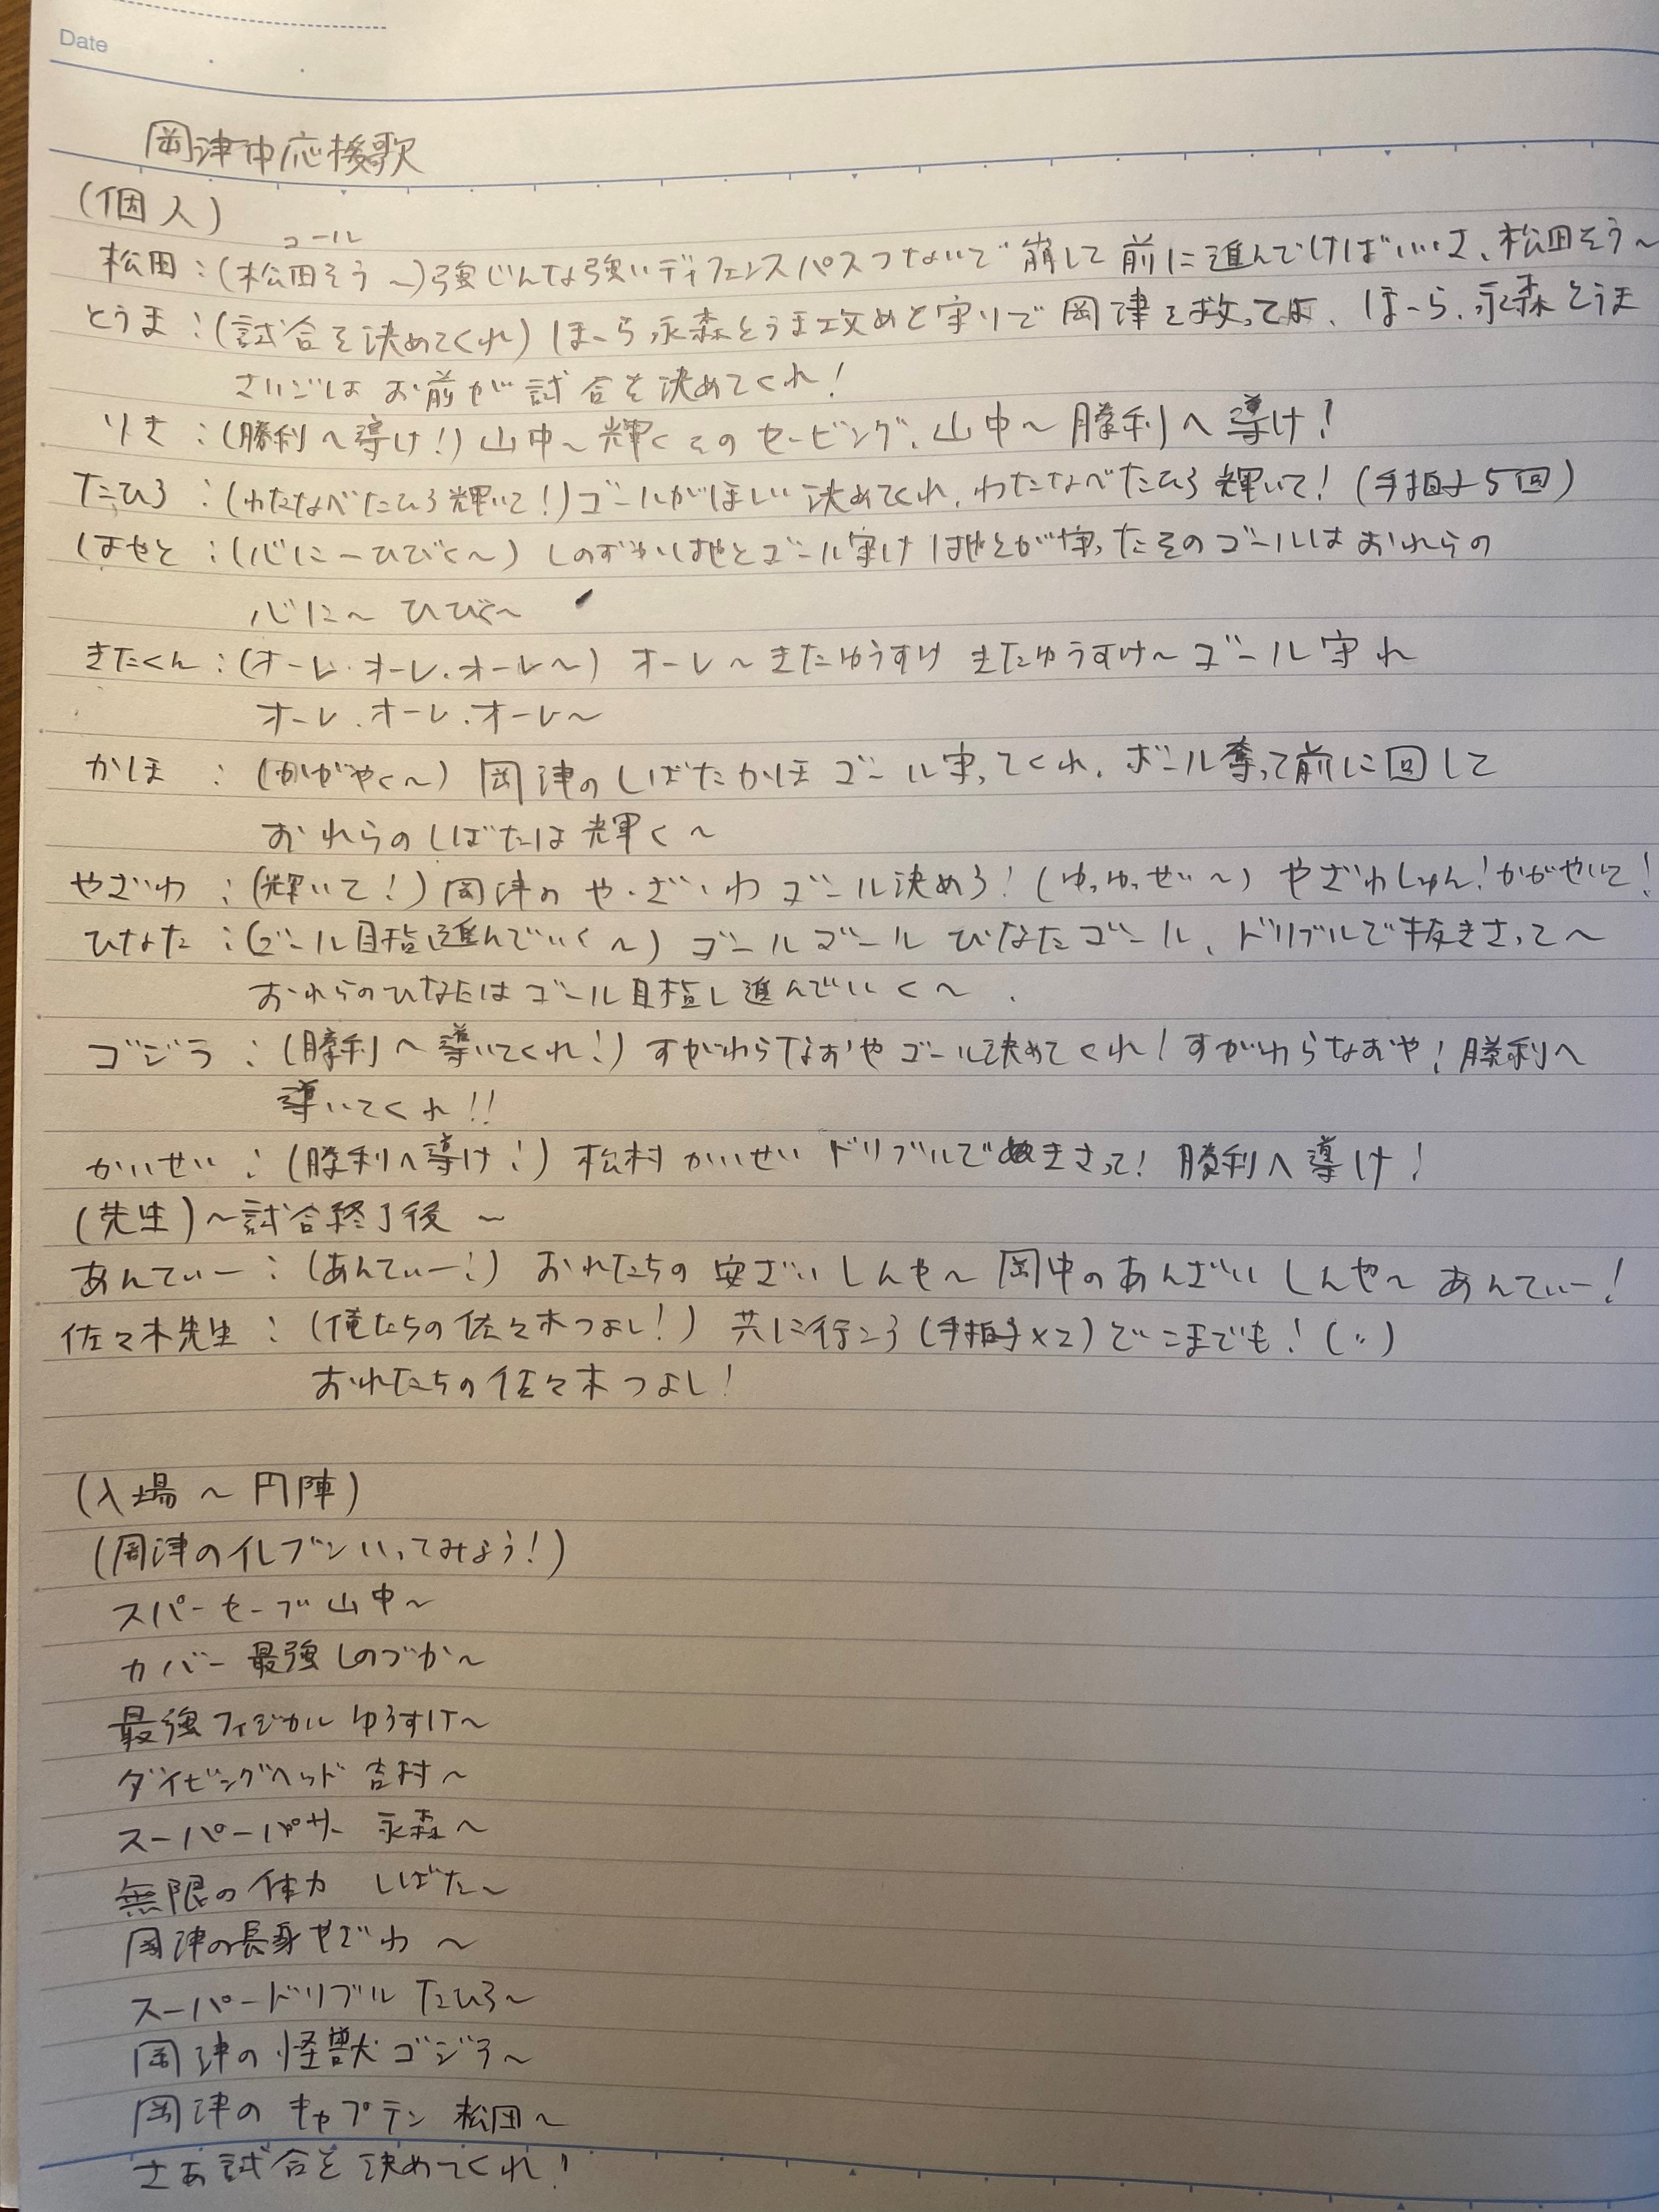 Date
岡津中応援歌
(個人)
コール
松田:(松田そう〜)強じんな強いディフェンスパスつないで崩して前に進んでけばいいさ、松田そう〜
とうま:(試合を決めてくれ)ほーら永森とうま攻めと守りで岡津を救ってよ、ほーら、永森とうま
さいごはお前が試合を決めてくれ!
りき:(勝利へ導け!)山中〜輝くそのセービング、山中〜勝利へ導け!
たひろ:(わたなべたひろ輝いて!)ゴールがほしい決めてくれ、わたなべたひろ輝いて!(手拍子5回)
はやと:(心にーひびく〜)しのずかはやとゴール守けはやとが守ったそのゴールはおれらの
心に〜ひびく〜
きたくん:(オーレ・オーレ・オーレ〜)オーレ〜きたゆうすけ きたゆうすけ〜ゴール守れ
オーレ・オーレ・オーレ〜
かほ:(かがやく〜)岡津のしばたかほゴール守ってくれ、ボール奪って前に回して
おれらのしばたは輝く〜
やざわ:(輝いて!)岡津のや・ざ・わゴール決めろ!(ゆっゆっぜい〜)やざわしゅん!かがやいて!
ひなた:(ゴール目指し進んでいく〜)ゴールゴールひなたゴール、ドリブルで抜きさって〜
おれらのひなたはゴール目指し進んでいく〜
ゴジラ:(勝利へ導いてくれ!)すがわらなおやゴール決めてくれ!すがわらなおや!勝利へ
導いてくれ!!
かいせい:(勝利へ導け!)松村かいせいドリブルでぬきさって!勝利へ導け!
(先生)〜試合終了後〜
あんてぃー:(あんてぃー!)おれたちの安ざいしんや〜岡中のあんざいしんや〜あんてぃー!
佐々木先生:(俺たちの佐々木つよし!)共に行こう(手拍子×2)どこまでも!(〃)
おれたちの佐々木つよし!
(入場〜円陣)
(岡津のイレブンいってみよう!)
スパーセーブ山中〜
カバー最強しのづか〜
最強フィジカルゆうすけ〜
ダイビングヘッド吉村〜
スーパーパサー永森〜
無限の体力 しばた〜
岡津の長身やざわ〜
スーパードリブルたひろ〜
岡津の怪獣ゴジラ〜
岡津のキャプテン 松田〜
さあ試合を決めてくれ!